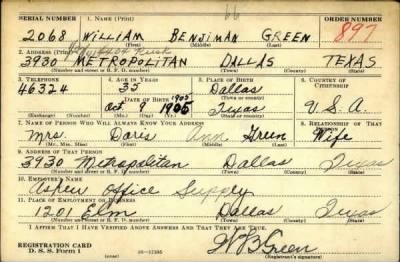 SERIAL NUMBER 1. NAME (Print) ORDER NUMBER
2068 WILLIAM BENJIMAN GREEN 897
(First) (Middle) (Last)
2. ADDRESS (Print) 4404 Rusk
3930 METROPOLITAN DALLAS TEXAS
(Number and street or R. F. D. number) (Town) (County) (State)
3. TELEPHONE 4. AGE IN YEARS 5. PLACE OF BIRTH 6. COUNTRY OF CITIZENSHIP
46324 35 Dallas
DATE OF BIRTH 1905 (Town or county)
Oct 9 1905 Texas U.S.A.
(Exchange) (Number) (Mo.) (Day) (Yr.) (State or country)
7. NAME OF PERSON WHO WILL ALWAYS KNOW YOUR ADDRESS 8. RELATIONSHIP OF THAT PERSON
Mrs. Doris Ann Green Wife
(Mr., Mrs., Miss) (First) (Middle) (Last)
9. ADDRESS OF THAT PERSON
3930 Metropolitan Dallas Texas
(Number and street or R. F. D. number) (Town) (County) (State)
10. EMPLOYER'S NAME
Office Supply
11. PLACE OF EMPLOYMENT OR BUSINESS
1201 Elm Dallas Texas
(Number and street or R. F. D. number) (Town) (County) (State)
I AFFIRM THAT I HAVE VERIFIED ABOVE ANSWERS AND THAT THEY ARE TRUE.
REGISTRATION CARD WB Green
D. S. S. Form 1 (over) (Registrant's signature)